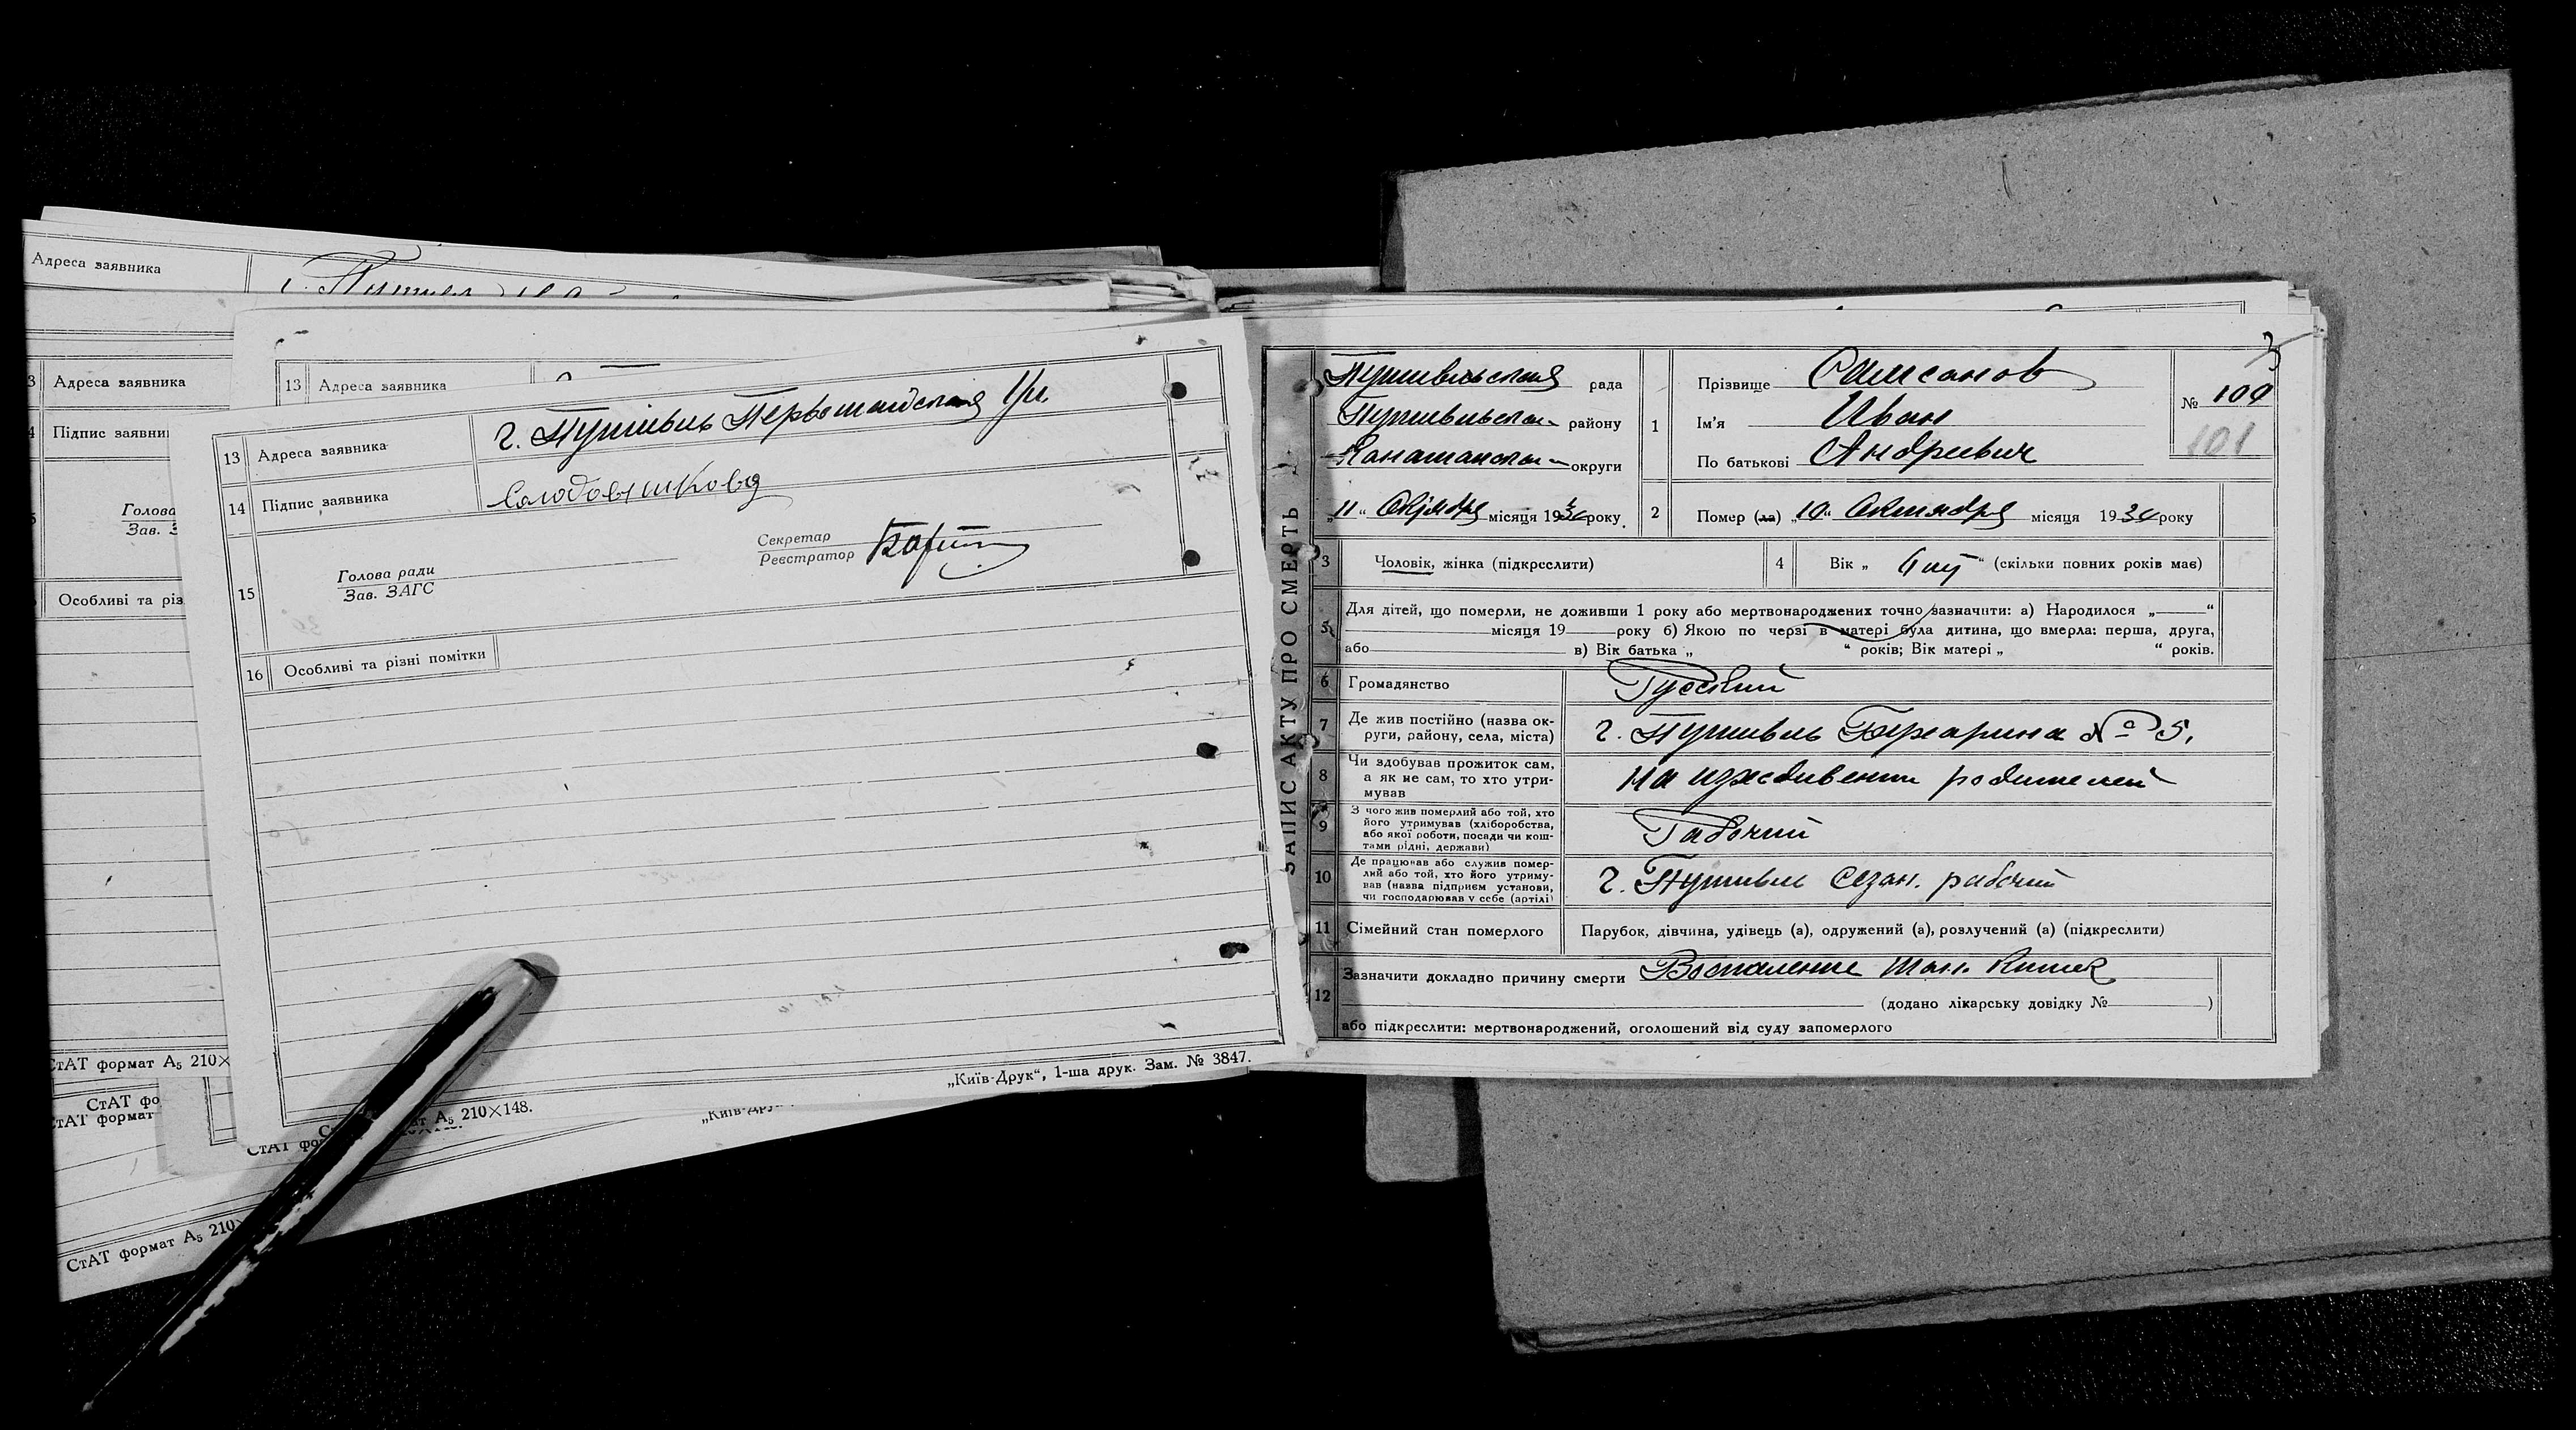 Адреса заявника
3 Адреса заявника
4 Підпис заявни
Голова
Зав. З
Особливі та різ
СтАТ формат А₅ 210×
СтАТ фо
СтАТ формат
СтАТ формат А₅ 210×
13 Адреса заявника
13 Адреса заявника г. Путивль Первомайская
14 Підпис заявника Солодовникова
15 Голова ради
Зав. ЗАГС
Секретар
Реєстратор
16 Особливі та різні помітки
„Київ-Друк“, 1-ша друк. Зам. № 3847.
ат А₅ 210×148.
СтАТ фор
„Київ-Дру
ЗАПИС АКТУ ПРО СМЕРТЬ
Путивльская рада
Путивльск. району
Конотопск. округи
„11“ Октября місяця 1934 року.
1 Прізвище Самсонов
Ім'я Иван
По батькові Андреевич
№ 100
101
3
2 Помер (ла) „10“ Октября місяця 1934 року
3 Чоловік, жінка (підкреслити)
4 Вік „ “ (скільки повних років має)
5 Для дітей, що померли, не доживши 1 року або мертвонароджених точно зазначити: а) Народилося „ “
місяця 19 року б) Якою по черзі в матері була дитина, що вмерла: перша, друга,
або в) Вік батька „ “ років; Вік матері „ “ років.
6 Громадянство Русский
7 Де жив постійно (назва ок-
руги, району, села, міста) г. Путивль № 5.
8 Чи здобував прожиток сам,
а як не сам, то хто утри-
мував на иждивении родителей
9 З чого жив померлий або той, хто
його утримував (хліборобства,
або якої роботи, посади чи кош-
тами рідні, держави) Рабочий
10 Де працював або служив помер-
лий або той, хто його утриму-
вав (назва підприєм установи,
чи господарював у себе (артілі) г. Путивль сезон. рабочий
11 Сімейний стан померлого Парубок, дівчина, удівець (а), одружений (а), розлучений (а) (підкреслити)
12 Зазначити докладно причину смерти Воспаление тон. кишек
(додано лікарську довідку № )
або підкреслити: мертвонароджений, оголошений від суду запомерлого